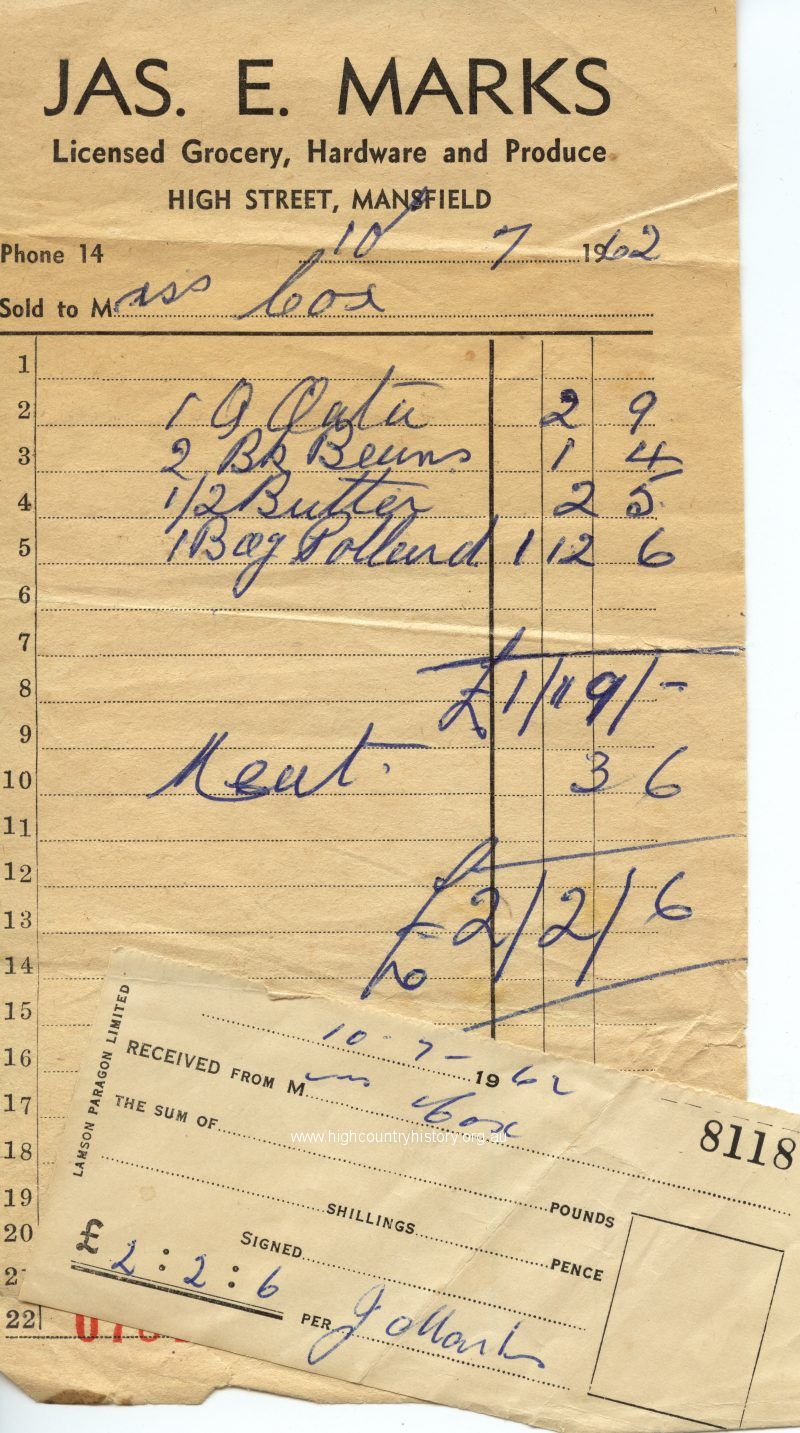 JAS. E. MARKS
Licensed Grocery, Hardware and Produce
HIGH STREET, MANSFIELD
Phone 14 10 7 1962
Sold to Miss Cox
1
2 1 Oats 2 9
3 2 Bk Beans 1 4
4 1/2 Butter 2 5
5 1 Bag Pollard 1 12 6
6
7
8 £1/19/-
9
10 Meat. 3 6
11
12
13 £2/2/6
14
15
16
17
18
19
20
21
22
LAMSON PARAGON LIMITED
10-7-1962
RECEIVED FROM M Cox
8118
THE SUM OF
www.highcountryhistory.org.au
POUNDS
SHILLINGS
PENCE
£ 2:2:6
SIGNED
PER